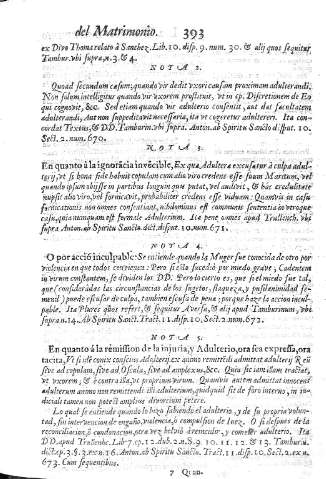 del Matrimonio. 393
ex Divo Thoma relato à Sanchez. Lib. 10. disp. 9. num. 30. & alij quos sequitur
Tambur. vbi supra, n. 3. & 4.
NOTA 2.
Quoad secundum casum; quando vir dedit vxori causam proximam adulterandi.
Non solum intelligitur quando vir vxorem prostituit, vt in cap. Discretionem de Eo
qui cognovit, &c. Sed etiam quando vir adulterio consensit, aut dat facultatem
adulterandi, Aut non suppeditavit necessaria, ita vt cogeretur adulterari. Ita con-
cordat Textus, & DD. Tamburin. vbi supra. Anton. ab Spiritu Sancto disput. 10.
Sect. 2. num. 670.
NOTA 3.
En quanto à la ignorãcia invẽcible, Ex qua, Adultera excusatur à culpa adul-
terij, vt si bona fide habuit copulam cum alio viro credens esse suum Maritum, vel
quando ipsum obijsse in partibus longinquis putat, vel audivit, & hac credulitate
nupsit alio viro, vel fornicavit, probabiliter credens esse viduam: Quamvis in casu
fornicationis non omnes consentiant, nihilominus est communis sententia vtroque
casu, quia nunquam est formale Adulterium. Ita pene omnes apud Trullench. vbi
supra Anton. ab Spiritu Sancto dict. disput. 10. num. 671.
NOTA 4.
O por acciõ inculpable: Se entiende quando la Muger fue conocida de otro por
violencia en que todos convienen: Pero si ella succedió por miedo grave, Cadentem
in virum constantem, se dividen los DD. Pero lo cierto es, que fue el miedo fue tal,
que (consideradas las circunstancias de los sugetos, flaqueza, y pusilanimidad fe-
menil) puede escusar de culpa, tambien escusa de pena; porque haze la accion incul-
pable. Ita Plures quos refert, & sequitur Aversa, & alij apud Tamburinum, vbi
supra n. 14. Ab Spiritu Sanct. Tract. 11. disp. 10. Sect. 2. num. 672.
NOTA 5.
En quanto à la remission de la injuria, y Adulterio, ora sea expressa, ora
tacita,
sive ad copulam, sive ad Oscula, sive ad amplexus, &c. Quia sic iam illam tractat,
vt vxorem, & è contra illa, vt proprium virum. Quamvis autem admittat innocens
adulterum animo non remittendi illi adulterium, quidquid sit de foro interno, in iu-
diciali tamen non potest amplius divortium petere.
Lo qual se entiende quando lo haze sabiendo el adulterio, y de su propria volun-
tad, sin intervencion de engaño, violencia, ò compulsion de Iuez. O si despues de la
reconciliacion, ò condonacion, otra vez bolviò à reincidir, y cometer adulterio. Ita
DD. apud Trullenc. Lib. 7. cap. 12. dub. 2. n. 8. 9. 10. 11. 12. & 13. Tamburin.
dict. cap. 3. §. 2. ex n. 16. Anton. ab Spiritu Sanctu. Tract. 11. disp. 10. Sect. 2. ex n.
673. Cum sequentibus.
7 Quan-